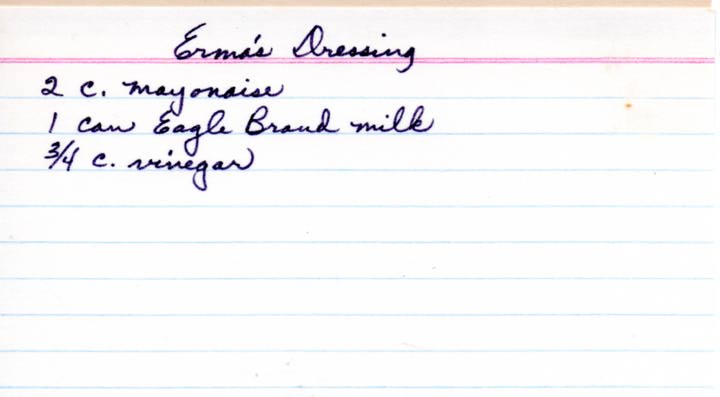 Erma's Dressing
2 c. mayonaise
1 can Eagle Brand milk
3/4 c. vinegar